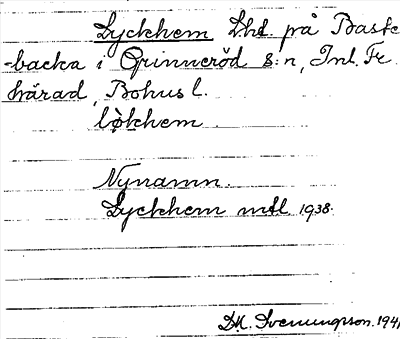 Lyckhem Lht. på Baste
-backa i Grinneröd s:n, Inl. Fr.
härad, Bohusl.
lỳkhem.
Nynamn.
Lyckhem mtl. 1938.
D.K. Svenungson. 1941